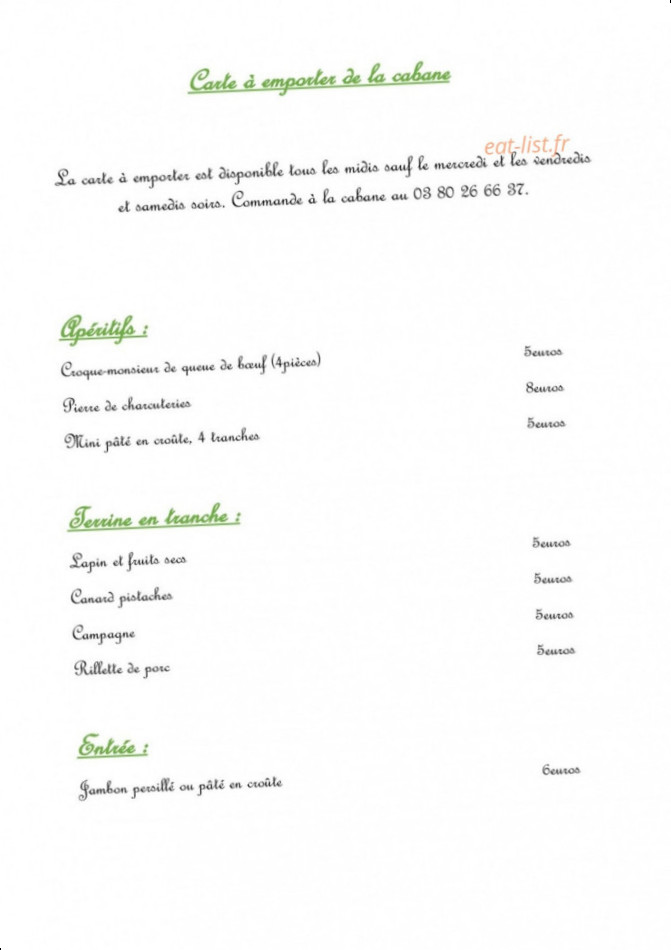 Carte à emporter de la cabane
eat-list.fr
La carte à emporter est disponible tous les midis sauf le mercredi et les vendredis
et samedis soirs. Commande à la cabane au 03 80 26 66 37.
Apéritifs :
Croque-monsieur de queue de bœuf (4pièces) 5euros
Pierre de charcuteries 8euros
Mini pâté en croûte, 4 tranches 5euros
Terrine en tranche :
Lapin et fruits secs 5euros
Canard pistaches 5euros
Campagne 5euros
Rillette de porc 5euros
Entrée :
Jambon persillé ou pâté en croûte 6euros